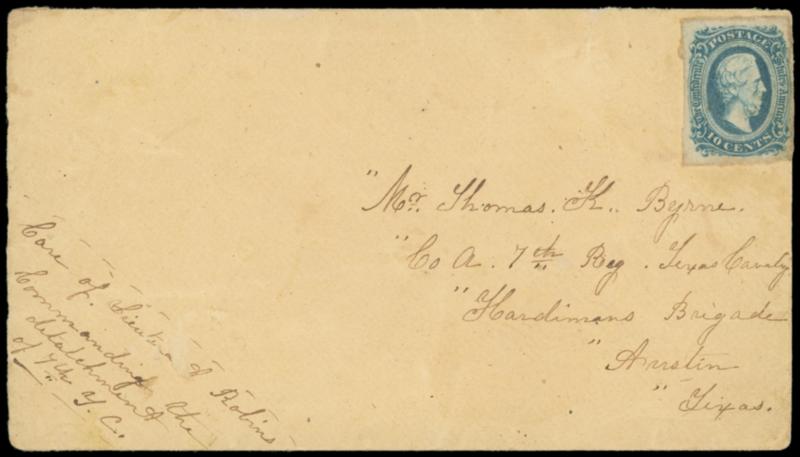 POSTAGE
The Confederate States of America
10 CENTS
"Mr. Thomas. K.. Byrne.
"Co A. 7th Reg. Texas Cavaly
"Hardimans Brigade
"Austin
"Texas.
Care of. Lieuten J Robins
Commanding the
ditatchment
of 7th T. C.